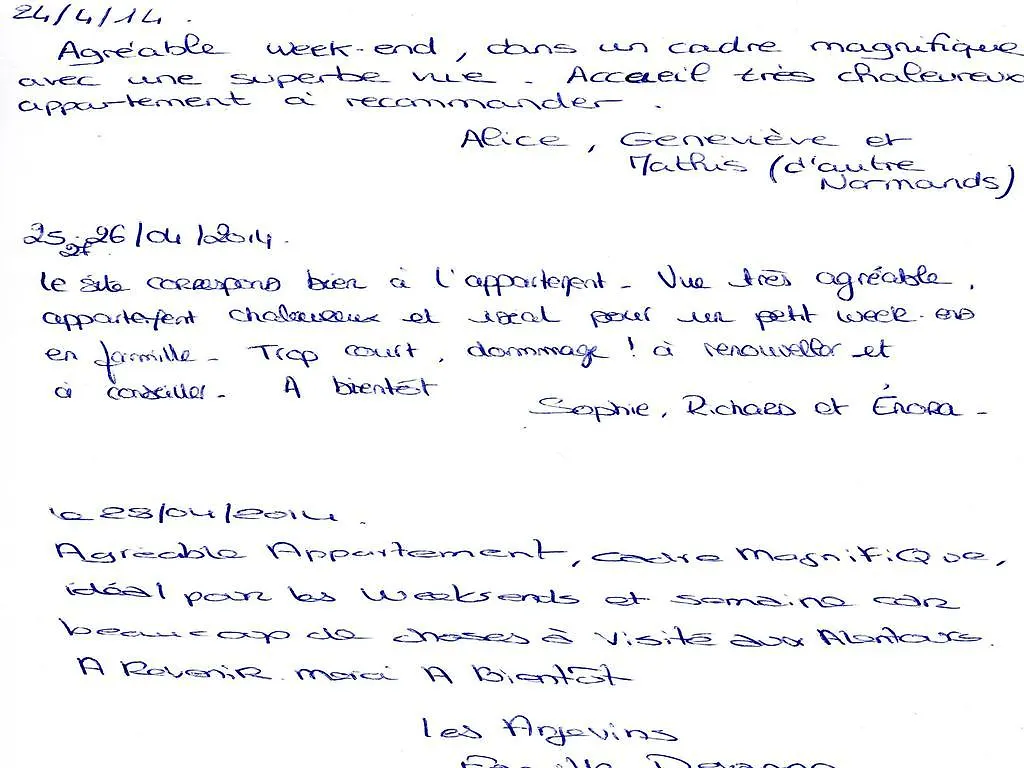 24/4/14.
Agréable week-end, dans un cadre magnifique
avec une superbe vue. Accueil très chaleureux
appartement à recommander.
Alice, Geneviève et
Mathis (d'autre
Normands)
25, 26/04/2014.
27
le site correspond bien à l'appartement - Vue très agréable,
appartement chaleureux et idéal pour un petit week-end
en famille - Trop court, dommage ! à renouveller et
à conseiller - A bientôt
Sophie, Richard et Énora -
le 28/04/2014.
Agréable Appartement, cadre MagnifiQue,
idéal pour les weeksends et semaine car
beaucoup de choses à visité aux Alentours.
A Revenir. merci A Bientôt
les Anjevins
Famille